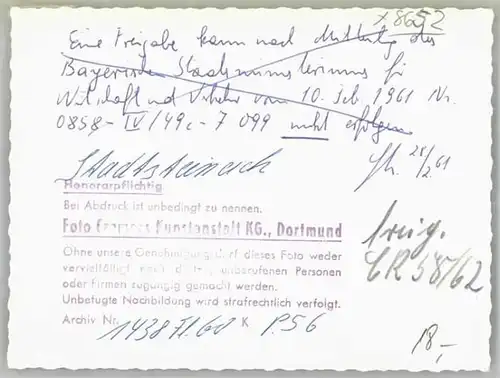 x 8652
Eine Freigabe kann nach Mitteilg des
Bayerischen Staatsministeriums für
Wirtschaft und Verkehr vom 10. Feb. 1961 Nr.
0858 - IV/49c - 7 099 nicht erfolgen
28/2 61
Stadtsteinach
Honorarpflichtig
Bei Abdruck ist unbedingt zu nennen.
Foto Kunstanstalt KG., Dortmund
freig.
CR 58/62
Ohne unsere Genehmigung darf dieses Foto weder
vervielfältigt noch dritten, unberufenen Personen
oder Firmen zugängig gemacht werden.
Unbefugte Nachbildung wird strafrechtlich verfolgt.
Archiv Nr. 1438 Fl. 60 K P.56
18,-